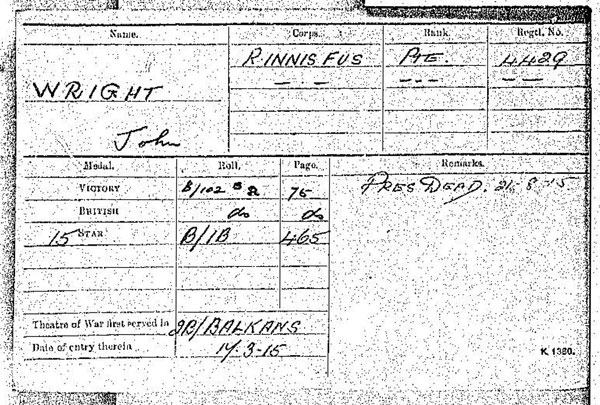 Name. Corps. Rank. Regtl. No.
R. INNIS FUS PTE. 4429
WRIGHT
John
Medal. Roll. Page. Remarks.
VICTORY B/102 75 PRES DEAD. 21-8-15
BRITISH do do
15 STAR B/1B 465
Theatre of War first served in 2B/BALKANS
Date of entry therein 17-3-15
K. 1380.